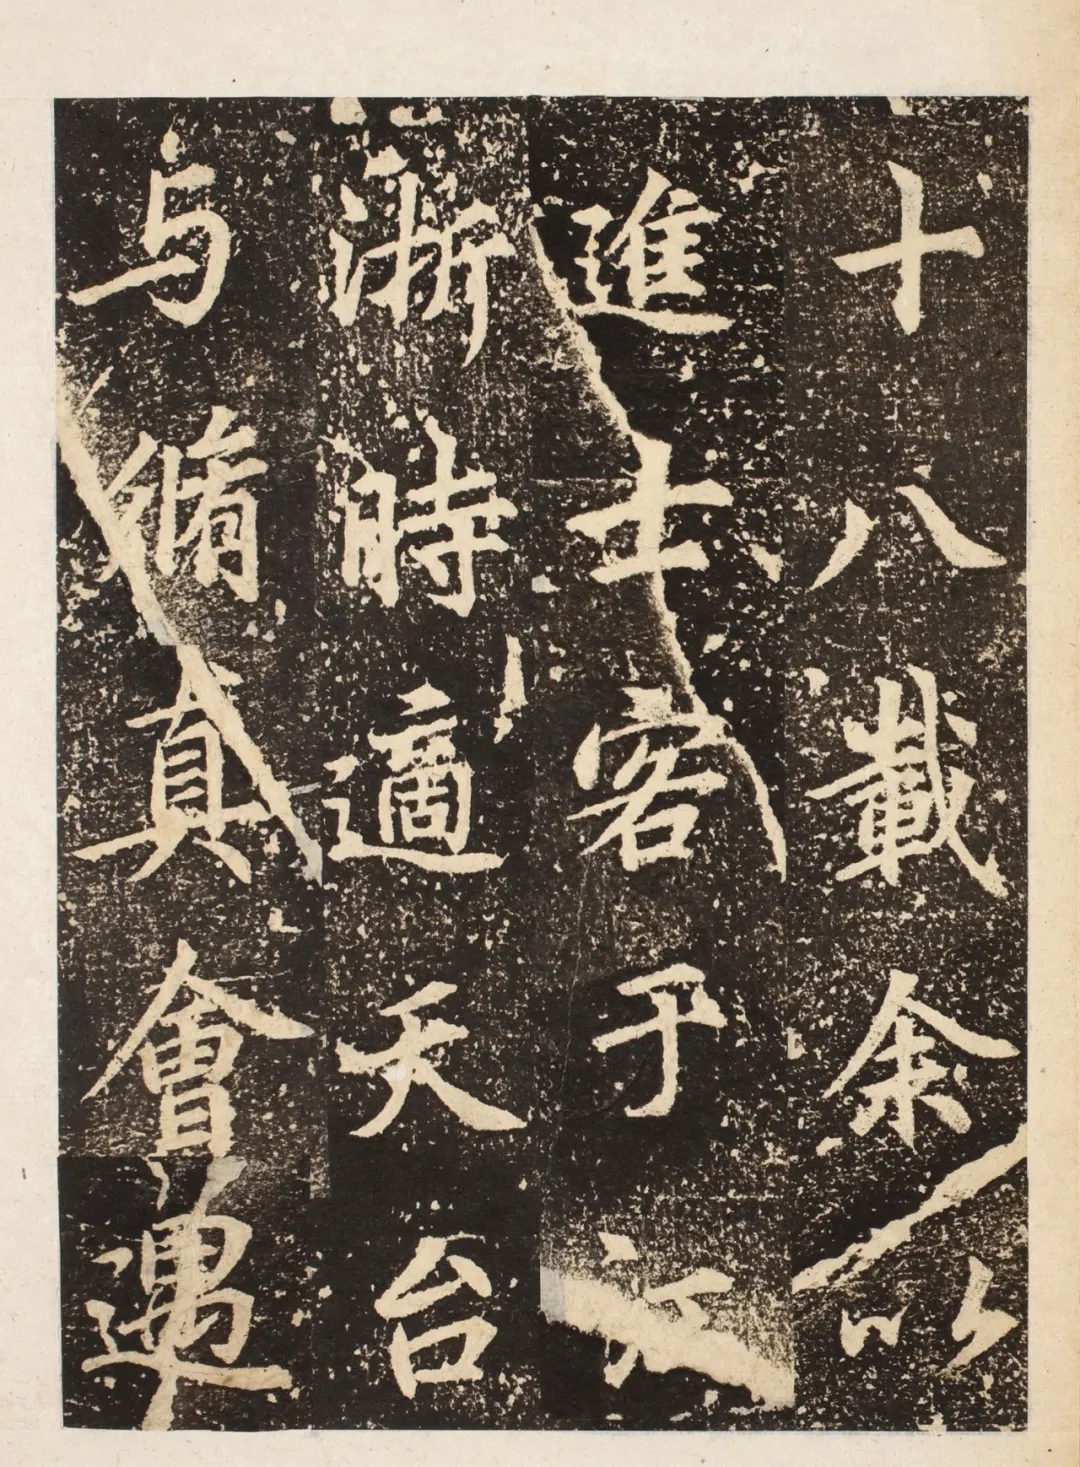 十八載余以
進士客于江
浙時適天台
与脩真會遇